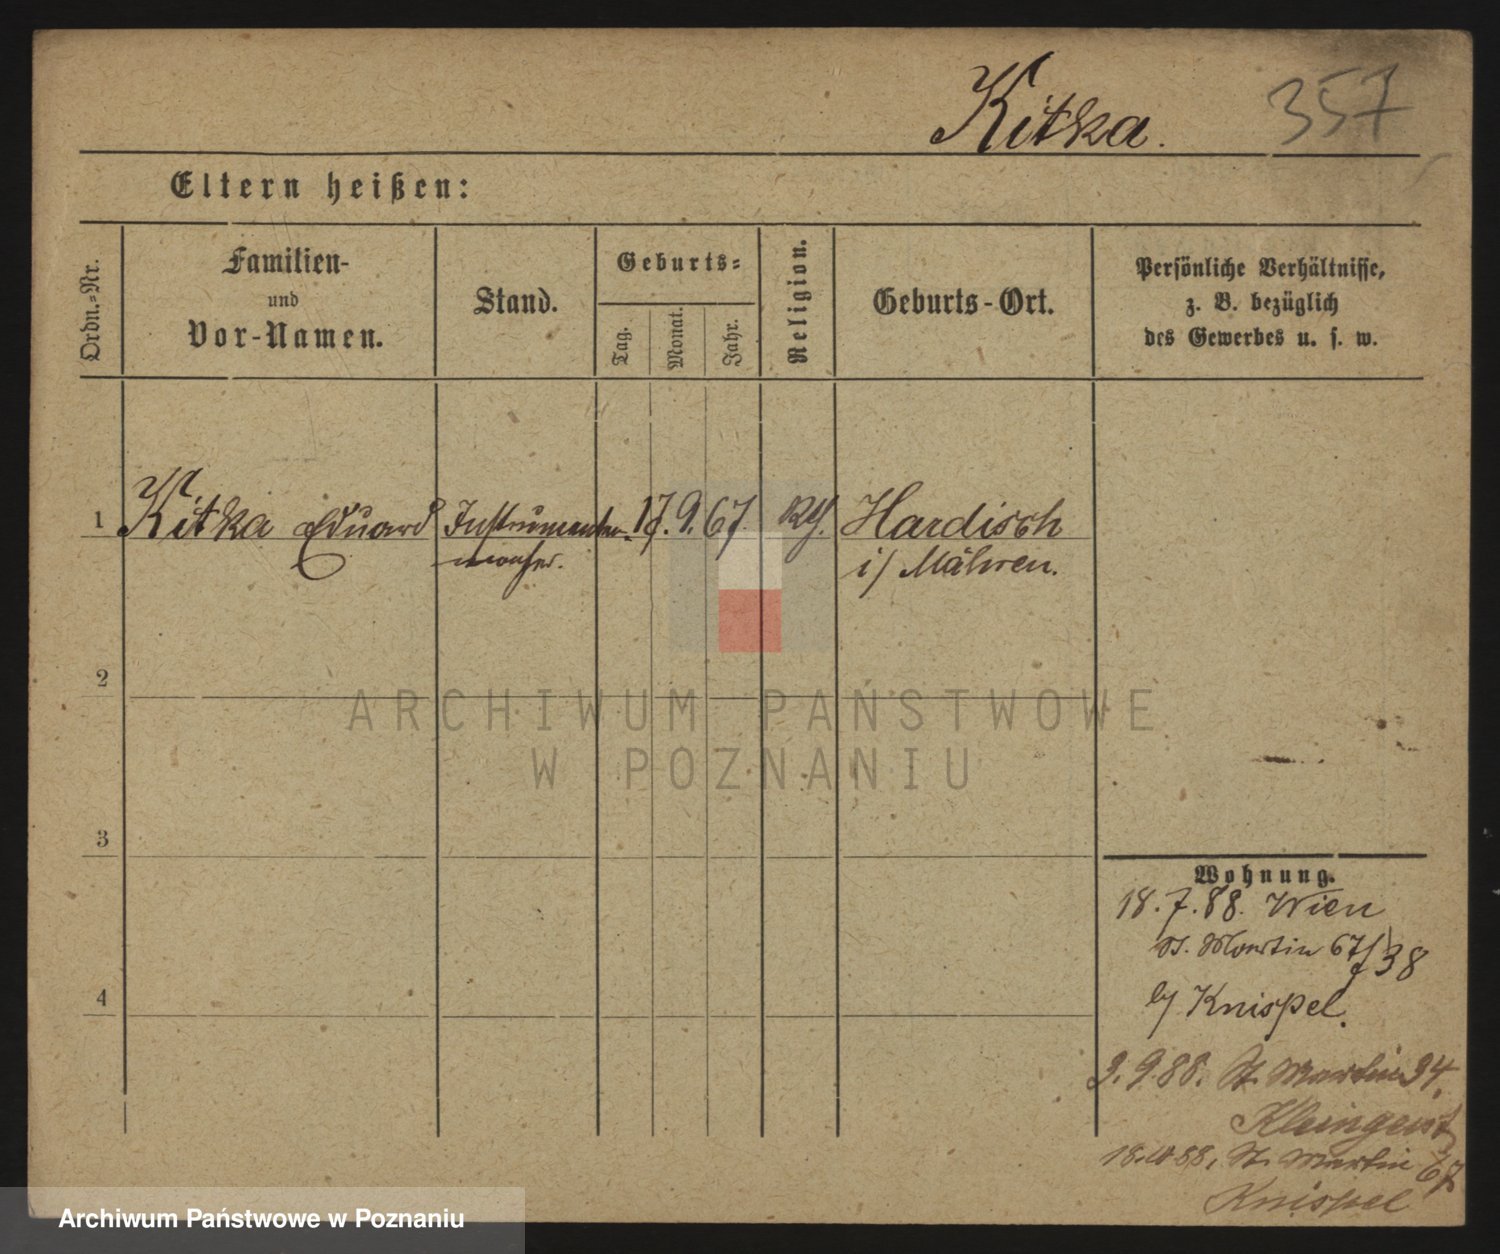 Kitka. 357
Eltern heißen:
Ordn.-Nr.
Familien-
und
Vor-Namen.
Stand.
Geburts-
Tag.
Monat.
Jahr.
Religion.
Geburts-Ort.
Persönliche Verhältnisse,
z. B. bezüglich
des Gewerbes u. s. w.
1 Kitka Eduard Instrumenten- 17. 9. 67. Hardisch
macher. i/ Mähren.
2
ARCHIWUM PAŃSTWOWE
W POZNANIU
3
Wohnung.
18. 7. 88. Wien
St. Martin 67/38
4
b/ Knispel.
9. 88. St. Martin
St. Martin 67
Knispel
Archiwum Państwowe w Poznaniu